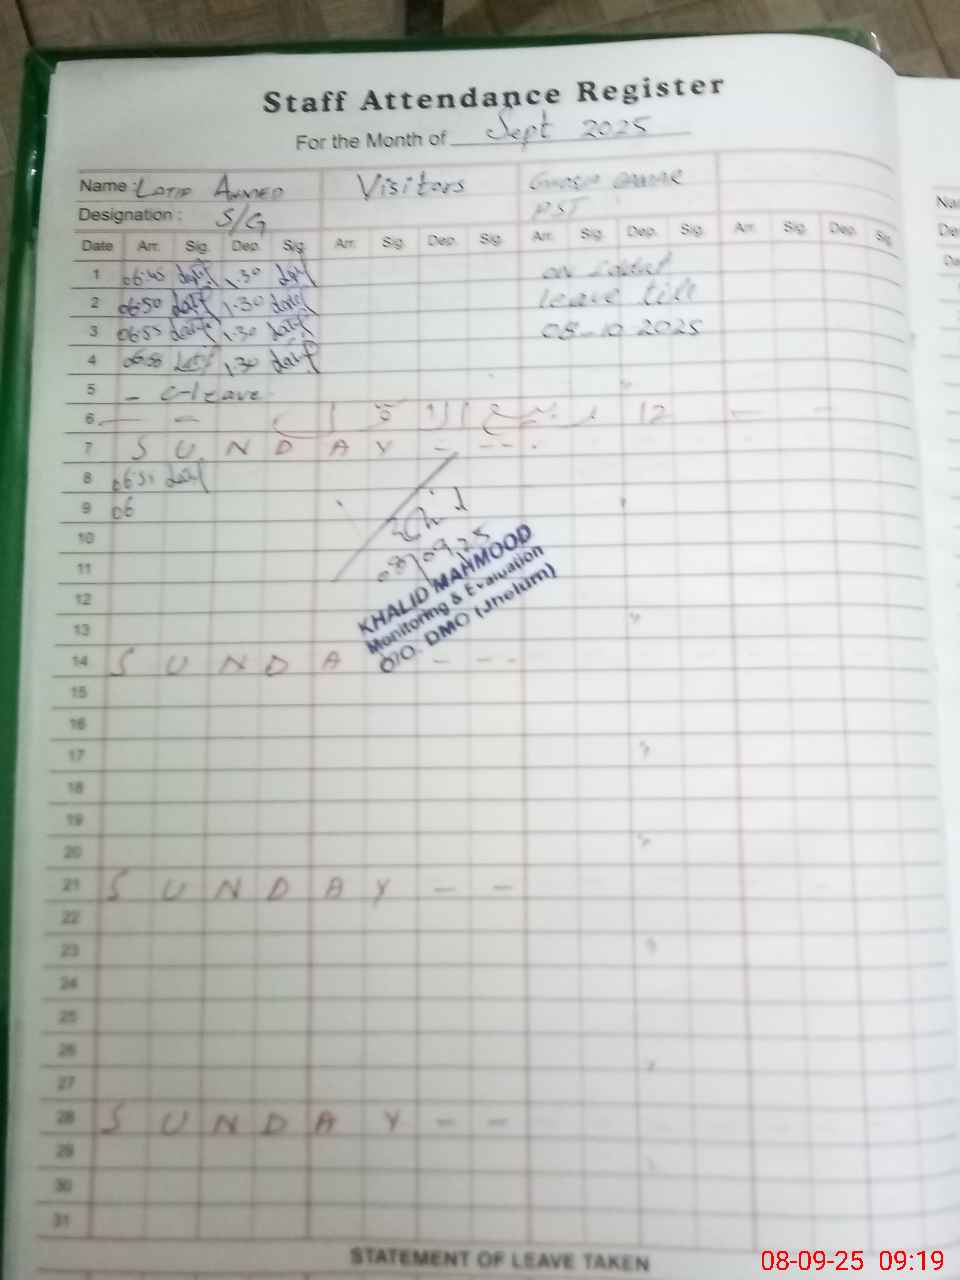 Staff Attendance Register
For the Month of Sept 2025
Name : LATIF AHMED Visitors
Designation : S/G PST
Date Arr. Sig. Dep. Sig. Arr. Sig. Dep. Sig. Arr. Sig. Dep. Sig. Arr. Sig. Dep. Sig.
1 06:45 1.30 on
2 06:50 1.30 leave till
3 06:55 1.30 08-10 2025
4 06:58 1.30
5 - C-leave
6 — — 12 ربیع الاول — -
7 S U N D A Y - - - -
8 06:51
9 06
10
11 08/09.25
KHALID MAHMOOD
Monitoring & Evaluation
O/O. DMO (Jhelum)
12
13
14 S U N D A - - - -
15
16
17
18
19
20
21 S U N D A Y - -
22
23
24
25
26
27
28 S U N D A Y - -
29
30
31
STATEMENT OF LEAVE TAKEN
08-09-25 09:19
Na
De
Da